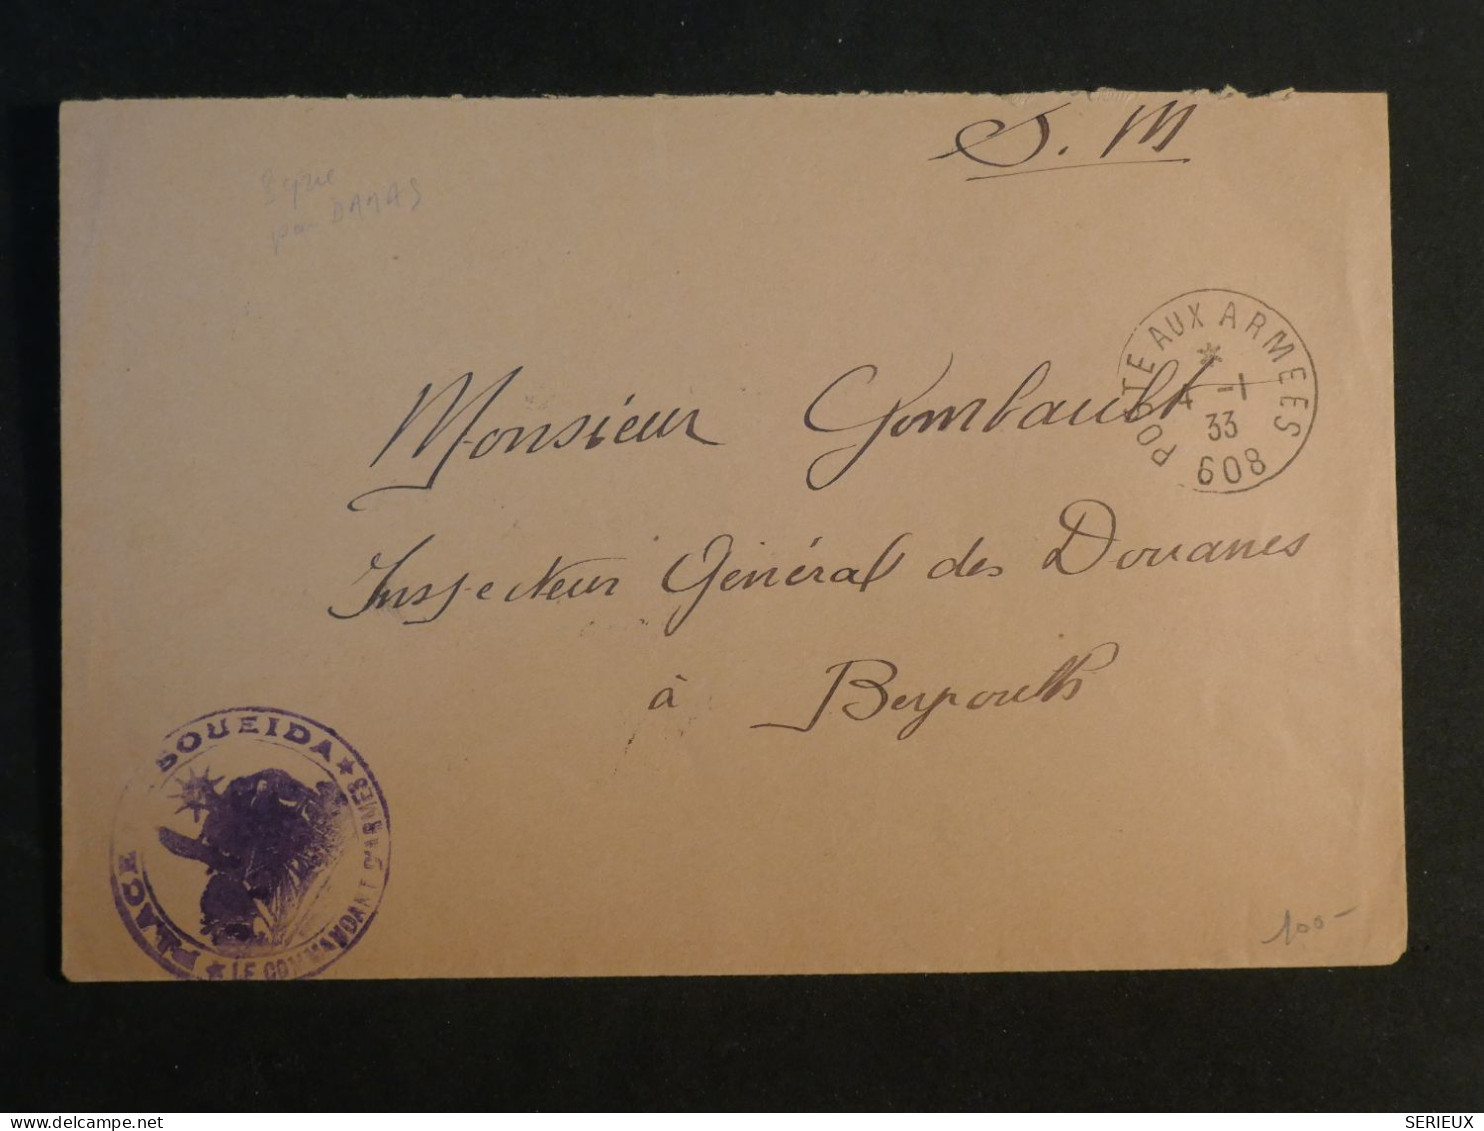 S. M
par DAMAS
POSTE AUX ARMEES
*
4 -1
33
608
Monsieur Gombault
Inspecteur Général des Douanes
à Beyrouth
PLACE DE SOUEIDA
★ LE COMMANDANT D'ARMES ★
100-
SERIEUX